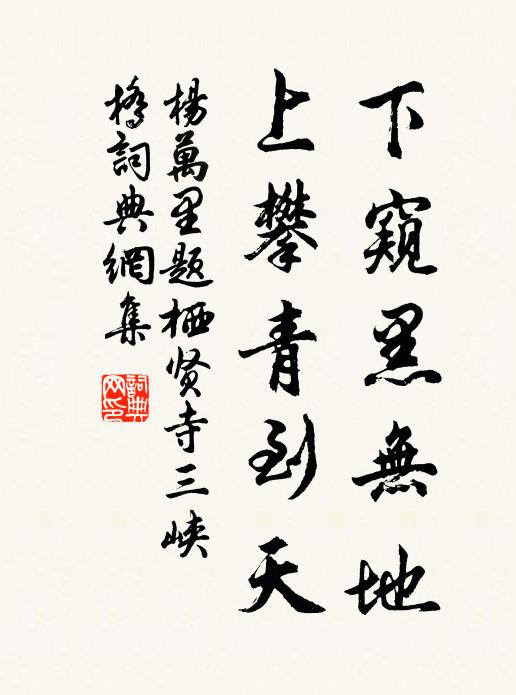 下窺黑無地
上攀青到天
楊萬里題栖贤寺三峽
橋詞典網集
詞典网印